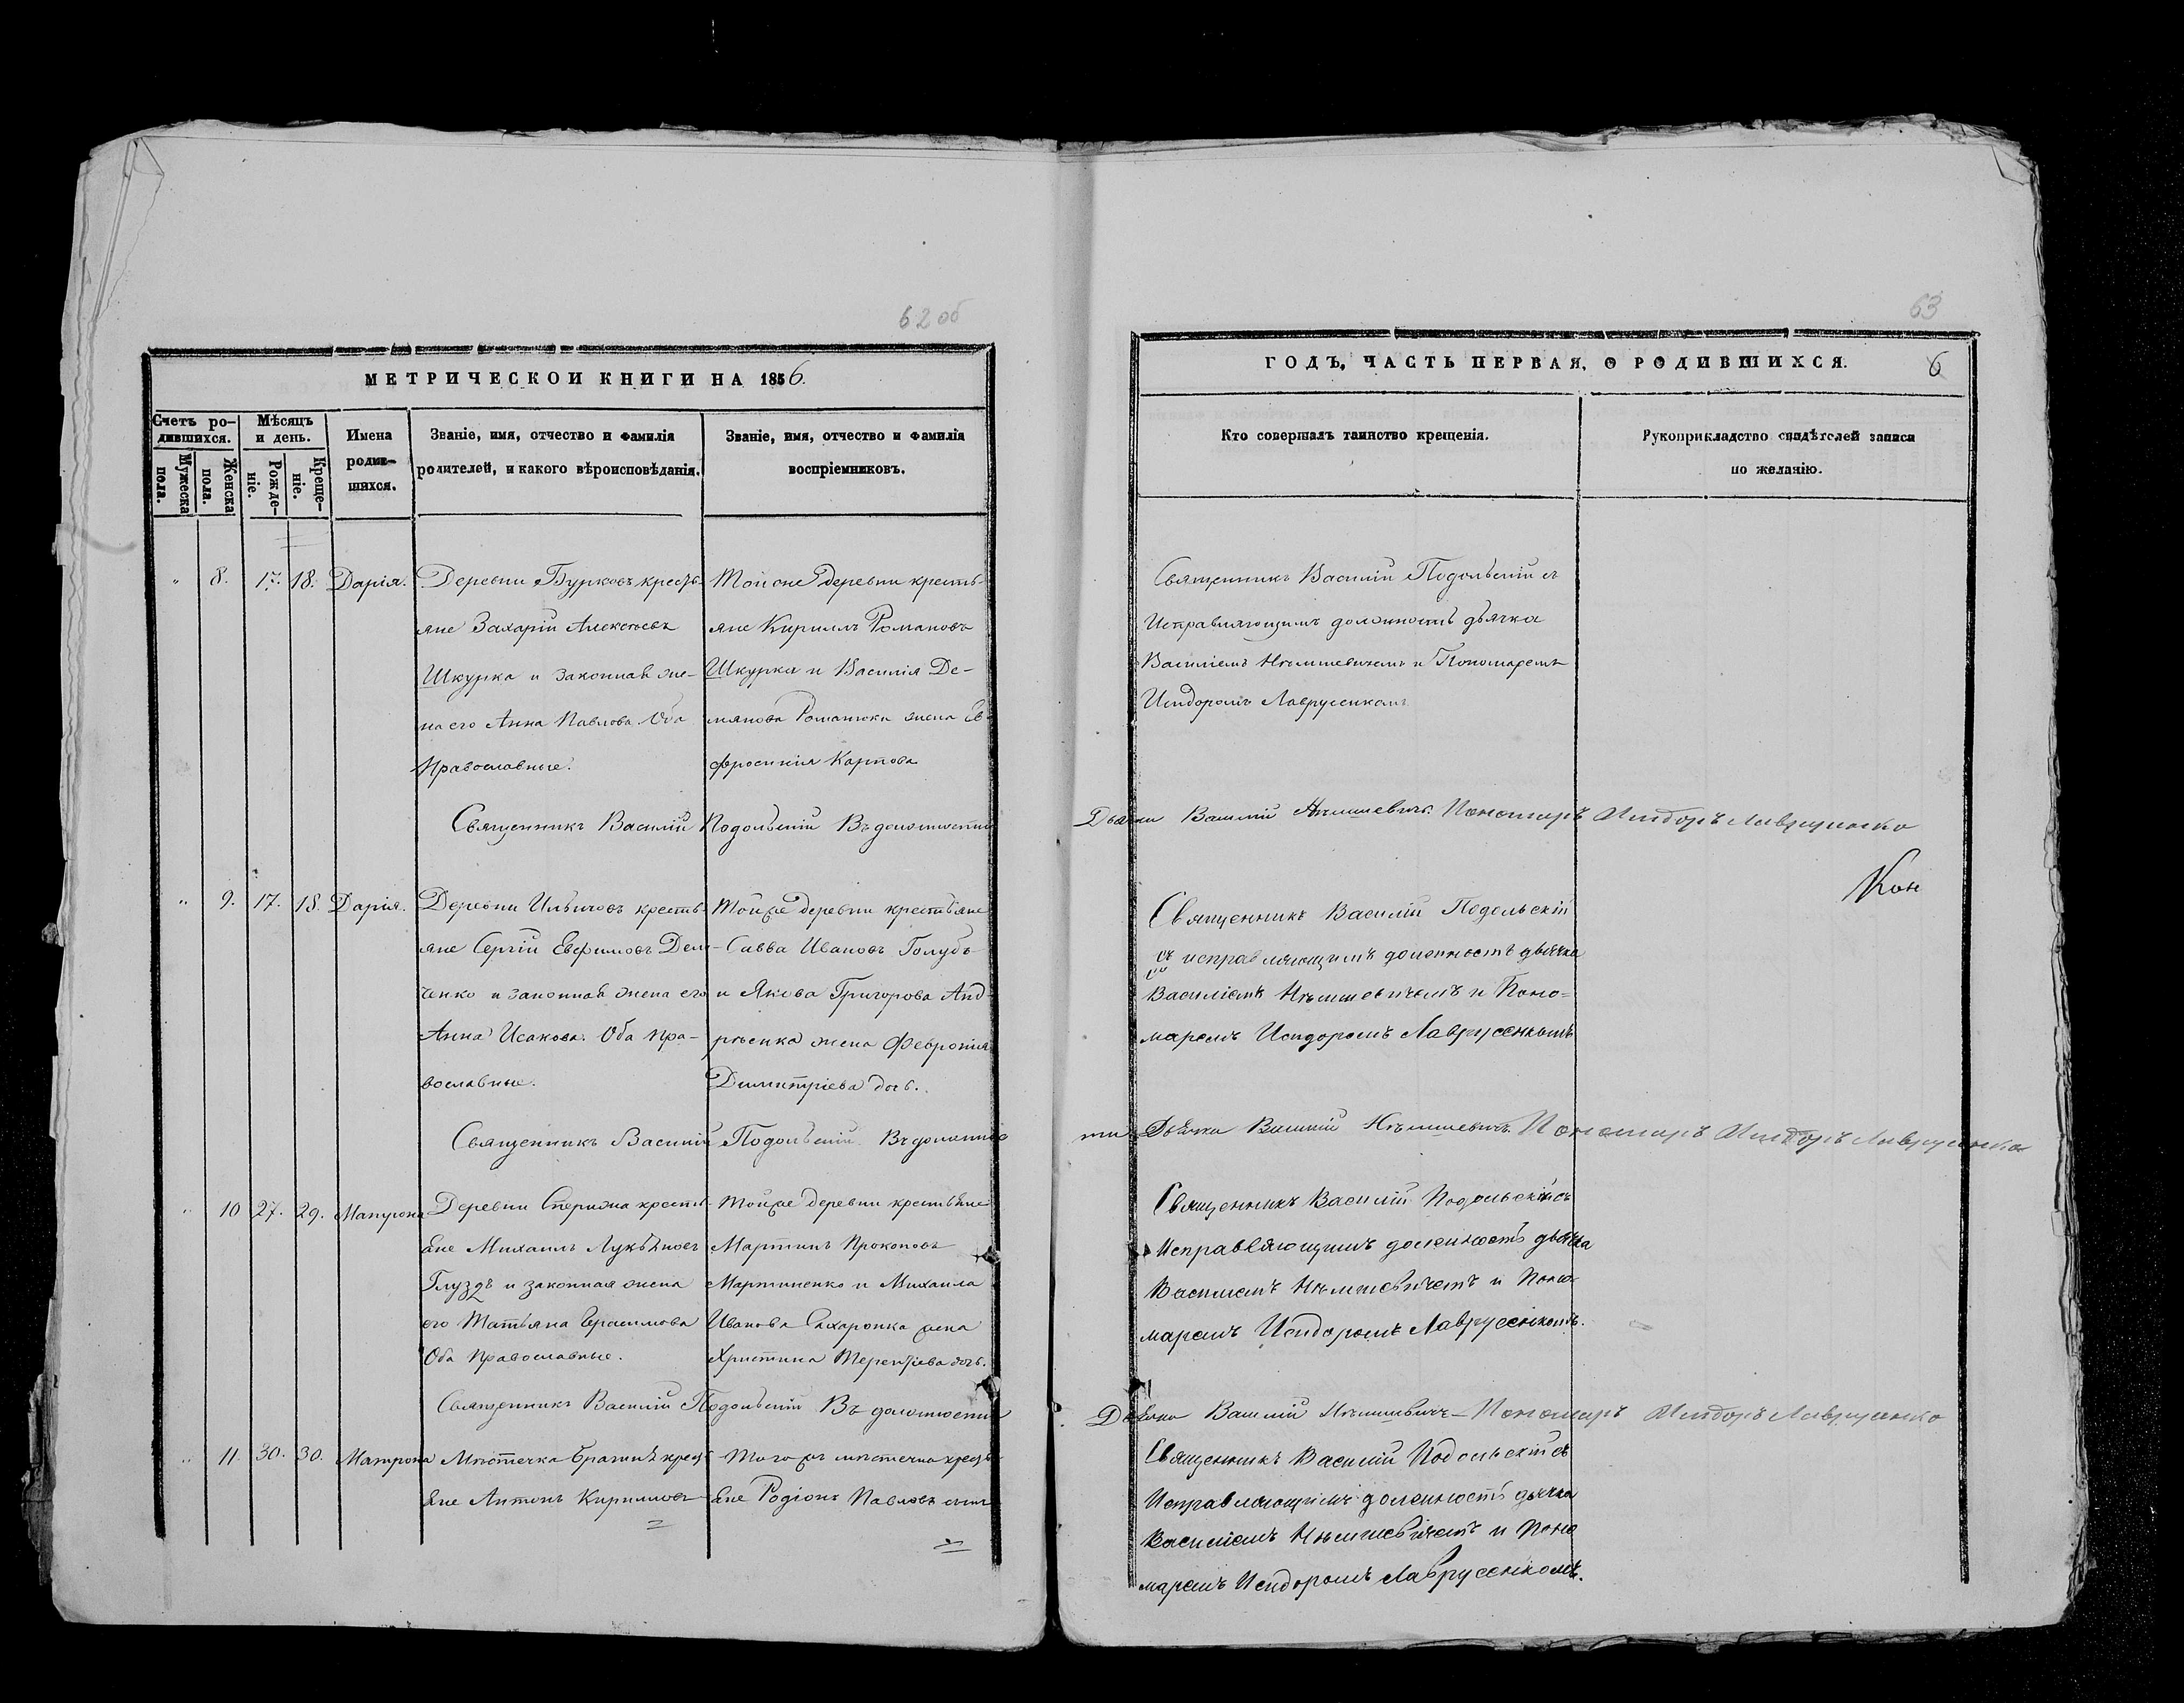 62 об
МЕТРИЧЕСКОЙ КНИГИ НА 1856.
Счетъ ро-
дившихся.
Мужеска
пола.
Женска
пола.
Мѣсяцъ
и день.
Рожде-
ніе.
Креще-
ніе.
Имена
роди-
шихся.
Званіе, имя, отчество и фамилія
родителей, и какого вѣроисповѣданія.
Званіе, имя, отчество и фамилія
воспріемниковъ.
" 8. 17. 18. Дарія.
Деревни Бурковъ кресть-
яне Захарій Алексѣевъ
Шкурка и законная же-
на его Анна Павлова Оба
Православные.
Той же деревни кресть-
яне Кириллъ Романовъ
Шкурка и Василія Де-
мянова Романюка жена Ев-
фросинія Карпова
Священникъ Василій Подольскій Въ должности
" 9. 17. 18. Дарія.
Деревни Ильичовъ кресть-
яне Сергій Евфимовъ Дем-
ченко и законная жена его
Анна Исакова. Оба Пра-
вославные.
Той же деревни крестьяне
Савва Ивановъ Голубъ
и Якова Григорова Анд-
рѣенка жена Февронія
Димитріева дочь.
Священникъ Василій Подольскій. Въ должнос
" 10 27. 29. Матрона
Деревни Спѣрижа кресть-
яне Михаилъ Лукьяновъ
Глуздъ и законная жена
его Татьяна Герасимова
Оба Православные.
Той же деревни крестьяне
Мартинъ Прокоповъ
Мартиненко и Михаила
Иванова Захаронка жена
Христина Терентіева дочь.
Священникъ Василій Подольскій Въ должности
" 11. 30. 30. Матрона
Мѣстечка Брагинѣ крест-
яне Антонъ Кириловъ
Того же мѣстечка крест-
яне Родіонъ Павловъ
63
ГОДЪ, ЧАСТЬ ПЕРВАЯ, О РОДИВШИХСЯ.
6
Кто совершалъ таинство крещенія.
Рукоприкладство свидѣтелей записи
по желанію.
Священникъ Василій Подольскій съ
Исправляющимъ должность дьячка
Василіемъ Нѣмшевичемъ и Пономаремъ
Исидоромъ Лаврусенкомъ
Дьячка Василій Нѣмшевичъ. Пономаръ Исидоръ Лаврусенко
Кон
Священникъ Василій Подольскій
съ исправляющимъ должность дьячка
Василіемъ Нѣмшевичемъ и Поно=
маремъ Исидоромъ Лаврусенкомъ
ти Дьячка Василій Нѣмшевичъ Пономаръ Исидоръ Лаврусенко
Священникъ Василій Подольскій съ
Исправляющимъ должность дьячка
Василіемъ Нѣмшевичемъ и Поно-
маремъ Исидоромъ Лаврусенкомъ.
Дьячка Василій Нѣмшевичъ – Пономаръ Исидоръ Лаврусенко
Священникъ Василій Подольскій съ
Исправляющимъ должность дьячка
Василіемъ Нѣмшевичемъ и Поно
маремъ Исидоромъ Лаврусенкомъ.